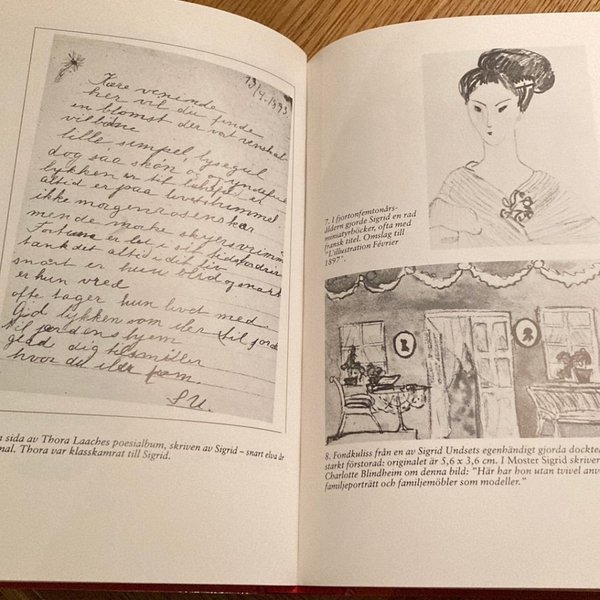 13/4-1893
Kære veninde
her vil du finde
en blomst der vort venskab
vil bære
lille, simpel, lysegul
dog saa skøn og yndefuld
lykken er tit
altid er paa
ikke morgenrøden
mende mørke skyers
Fortuna er let i sit
tænk det altid i dit liv
snart er hun blid og snart
er hun vred
ofte tager hun livet med
Gid lykken som iler til jorden
til jordens hjem
glad dig tilsmiler
hvor du iler frem.
S.U.
sida av Thora Laaches poesialbum, skriven av Sigrid – snart elva år
mal. Thora var klasskamrat till Sigrid.
7. I fjorton-femtonårs-
åldern gjorde Sigrid en rad
miniatyrböcker, ofta med
fransk titel. Omslag till
"L'illustration Février
1897".
8. Fondkuliss från en av Sigrid Undsets egenhändigt gjorda dockte
starkt förstorad: originalet är 5,6 x 3,6 cm. I Moster Sigrid skriver
Charlotte Blindheim om denna bild: "Här har hon utan tvivel anv
familjeporträtt och familjemöbler som modeller."